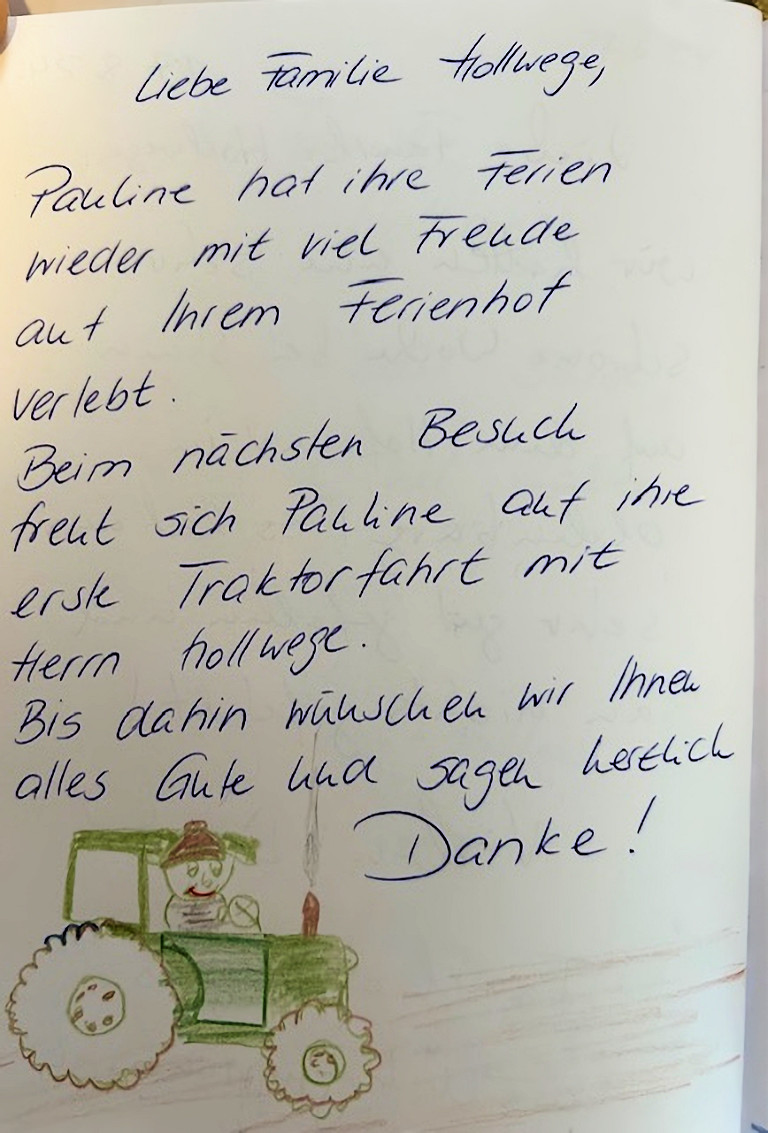 Liebe Familie Hollwege,
Pauline hat ihre Ferien
wieder mit viel Freude
auf Ihrem Ferienhof
verlebt.
Beim nächsten Besuch
freut sich Pauline auf ihre
erste Traktorfahrt mit
Herrn Hollwege.
Bis dahin wünschen wir Ihnen
alles Gute und sagen herzlich
Danke!